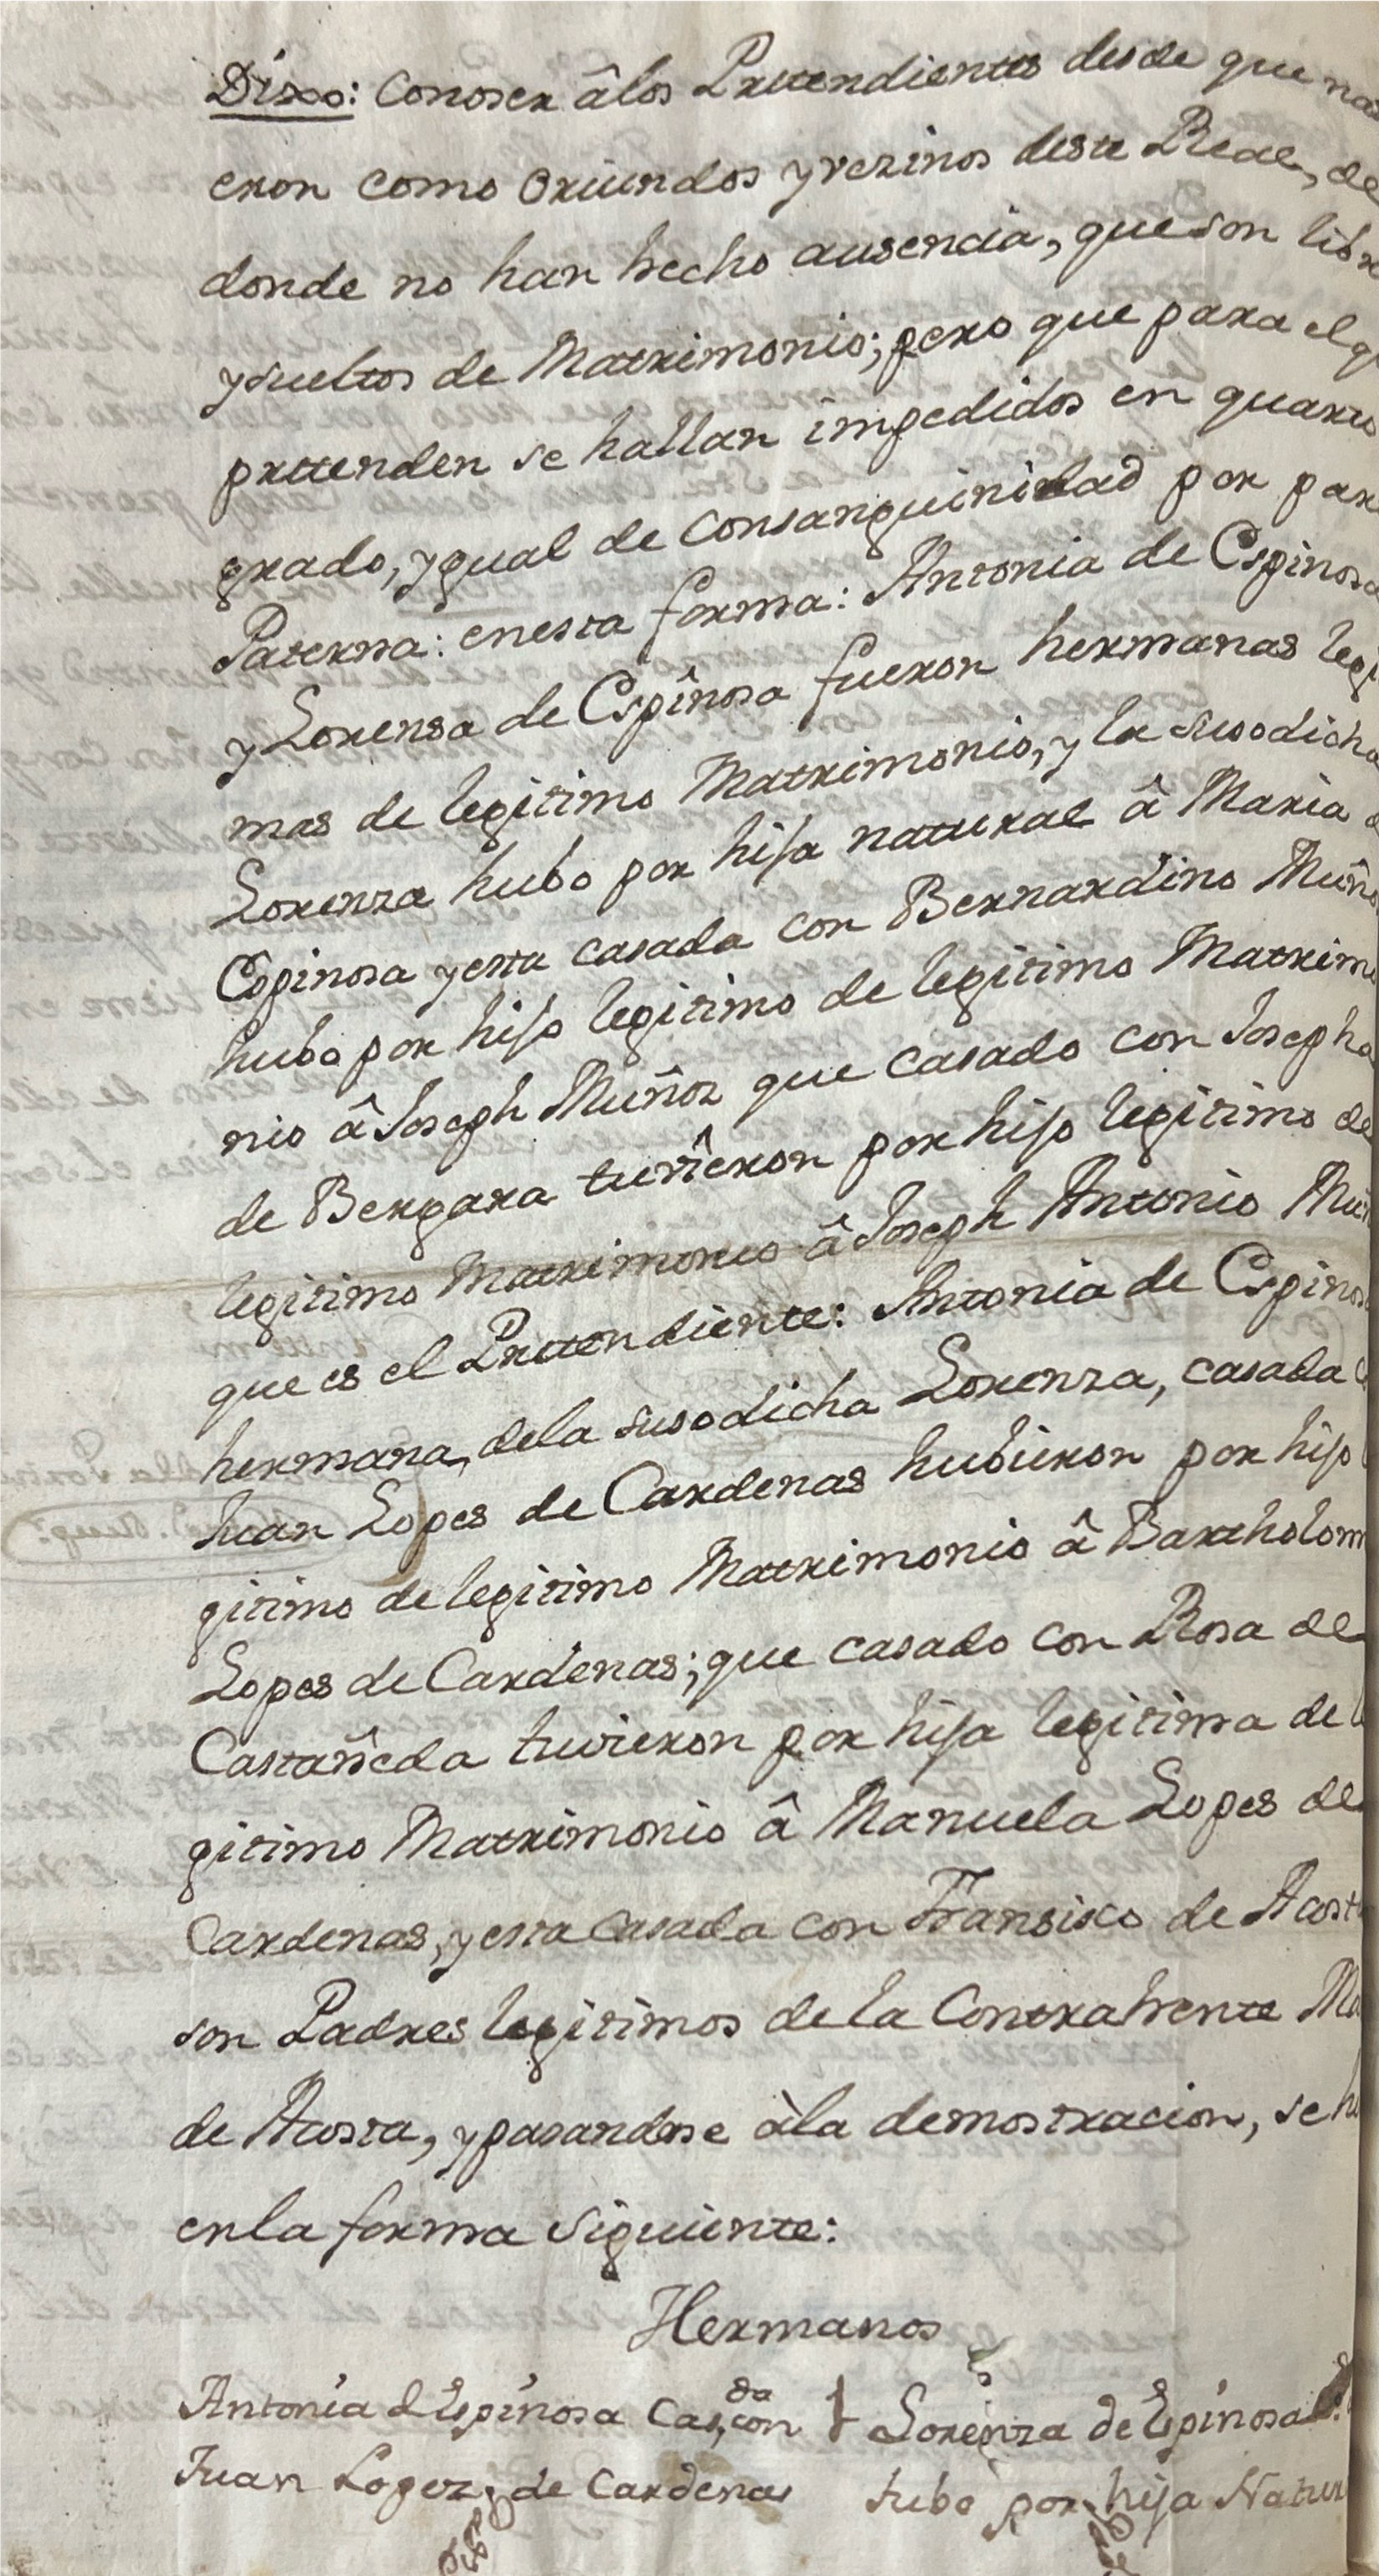 Dixo: Conoser âlos Pretendientes desde que na
eron como oriundos y vezinos deste Real, de
donde no han hecho ausencia, que son libr
y sueltos de Matrimonio; pero que para el q
pretenden se hallan impedidos en quarto
grado, ygual de Consanguinidad por par
Paterna: enesta forma: Antonia de Espinosa
y Lorensa de Espînosa fueron hermanas legi
mas de legitimo Matrimonio, y la susodicha
Lorenza hubo por hija natural â Maria d
Espinosa y esta casada con Bernardino Muño
hubo por hijo legitimo de legitimo Matrimo
nio â Joseph Muñoz que casado con Josepha
de Bergara tuvîeron por hijo legitimo de
legitimo Matrimonio â Joseph Antonio Muñ
que es el Pretendiente: Antonia de Espinosa
hermana, dela susodicha Lorenza, casada
Juan Lopes de Cardenas hubieron por hijo l
gitimo de legitimo Matrimonio â Bartholom
Lopes de Cardenas; que casado con Rosa de
Castañeda tuvieron por hija legitima de l
gitimo Matrimonio â Manuela Lopes de
Cardenas, y esta casada con Fransisco de Acosta
son Padres legitimos de la Contrahente Ma
de Acosta, y pasandose àla demostracion, se h
enla forma siguiente:
Hermanos
Antonia d Espinosa Casda con Lorenza de Espinosa
Juan Lopez de Cardenas tubo por hija Natur